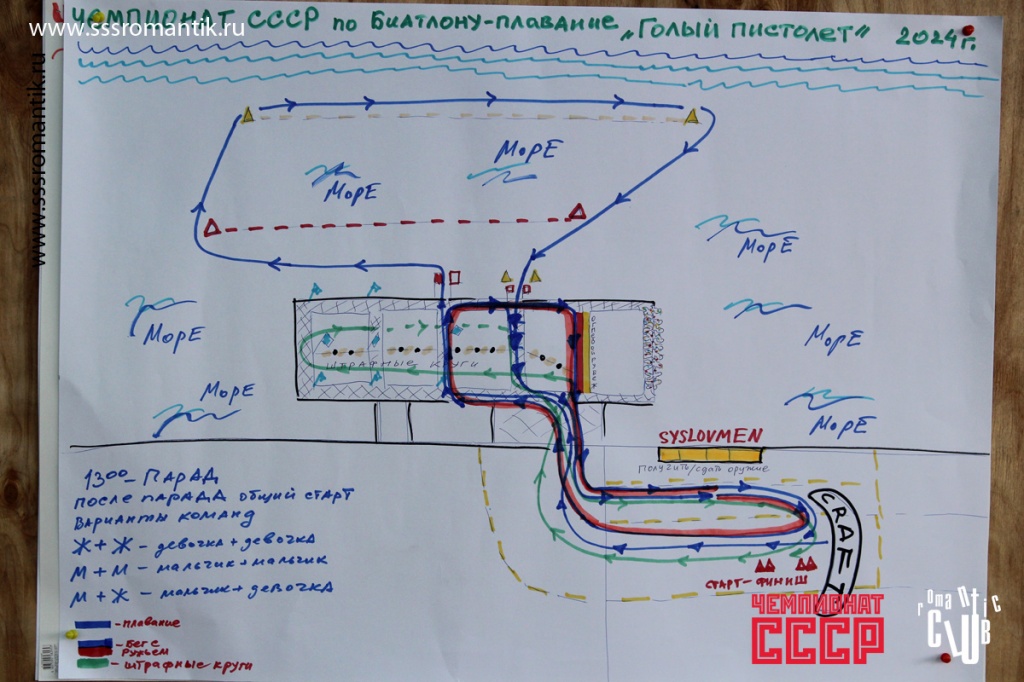 www.sssromantik.ru
ЧЕМПИОНАТ СССР по Биатлону-плавание „Голый пистолет" 2024г.
www.sssromantik.ru
МОРЕ
МОРЕ
МОРЕ
МОРЕ
МОРЕ
МОРЕ
МОРЕ
штрафные круги
SYSLOVMEN
Получить/сдать оружие
CRAFT
СТАРТ-ФИНИШ
13⁰⁰ - ПАРАД
после парада общий старт
варианты команд
Ж + Ж - девочка + девочка
М + М - мальчик + мальчик
М + Ж - мальчик + девочка
- плавание
- бег с ружьем
- штрафные круги
ЧЕМПИОНАТ
СССР
romantic
CLUB